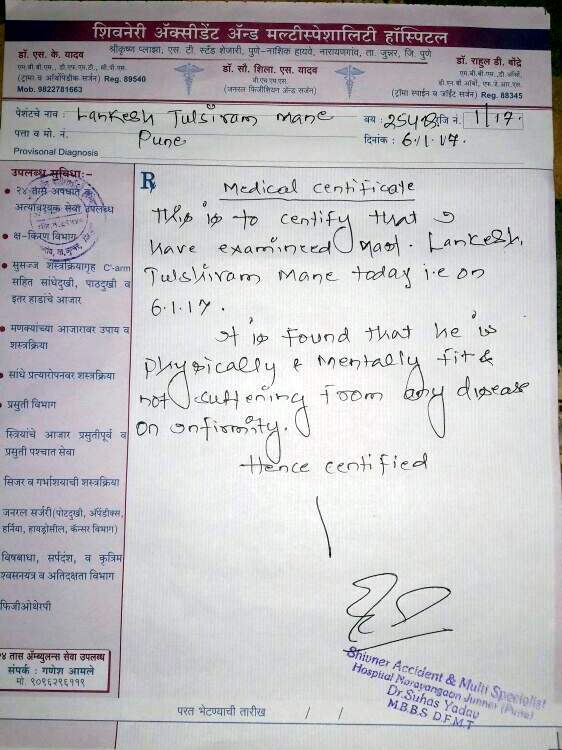 शिवनेरी ॲक्सीडेंट ॲन्ड मल्टीस्पेशालिटी हॉस्पिटल
श्रीकृष्ण प्लाझा, एस. टी. स्टॅंड शेजारी, पुणे-नाशिक हायवे, नारायणगांव, ता. जुन्नर, जि. पुणे
डॉ. एस. के. यादव
एम.बी.बी.एस., डी.एफ.एम.टी., सी.पी.एस.
(ट्रामा व ऑर्थोपेडीक सर्जन) Reg. 89540
Mob. 9822781663
डॉ. सौ. शिला. एस. यादव
बी एच एम एस
(जनरल फिजीशियन ॲन्ड सर्जन)
डॉ. राहुल डी. बोद्रे
एम.बी.बी.एस., एम.डी.ऑर्थो,
डी.एन.बी ऑर्थो, एफ.ए.आर.एस.
(ट्रामा स्पाईन व जॉईंट सर्जन) Reg. 88345
पेशंटचे नाव : Lankesh Tulsiram Mane वय : 25 रजि नं. 1/17.
पत्ता व मो. नं. Pune दिनांक : 6.1.17.
Provisional Diagnosis
उपलब्ध सुविधा:-
२४ तास अपघात व
अत्यावश्यक सेवा उपलब्ध
क्ष-किरण विभाग
सुसज्ज शस्त्रक्रियागृह C'-arm
सहित सांधेदुखी, पाठदुखी व
इतर हाडांचे आजार
मणक्यांच्या आजारावर उपाय व
शस्त्रक्रिया
सांधे प्रत्यारोपनवर शस्त्रक्रिया
प्रसुती विभाग
स्त्रियांचे आजार प्रसुतीपूर्व व
प्रसुती पश्चात सेवा
सिजर व गर्भाशयाची शस्त्रक्रिया
जनरल सर्जरी(पोटदुखी, अपेंडीक्स,
हर्निया, हायड्रोसील, कॅन्सर विभाग)
विषबाधा, सर्पदंश, व कृत्रिम
श्वसनयंत्र व अतिदक्षता विभाग
फिजीओथेरपी
२४ तास ॲम्ब्युलन्स सेवा उपलब्ध
संपर्क : गणेश आमले
मो. ९०९६२९६११९
Rx
Medical certificate
This is to certify that I
have examined Mast. Lankesh
Tulshiram Mane today i.e on
6.1.17.
It is found that he is
Physically & Mentally fit &
not suffering from any disease
or infirmity.
Hence certified
Shivner Accident & Multi Specialist
Hospital Narayangaon Junner (Pune)
Dr.Suhas Yadav
M.B.B.S D.F.M.T
परत भेटण्याची तारीख / /